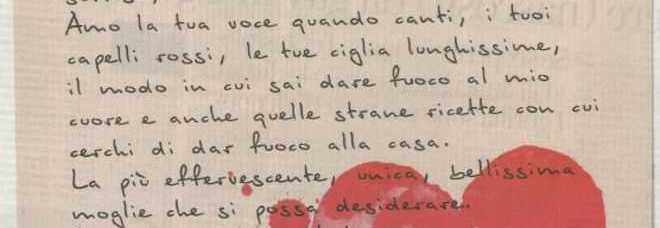 Amo la tua voce quando canti, i tuoi
capelli rossi, le tue ciglia lunghissime,
il modo in cui sai dare fuoco al mio
cuore e anche quelle strane ricette con cui
cerchi di dar fuoco alla casa.
La più effervescente, unica, bellissima
moglie che si possa desiderare..